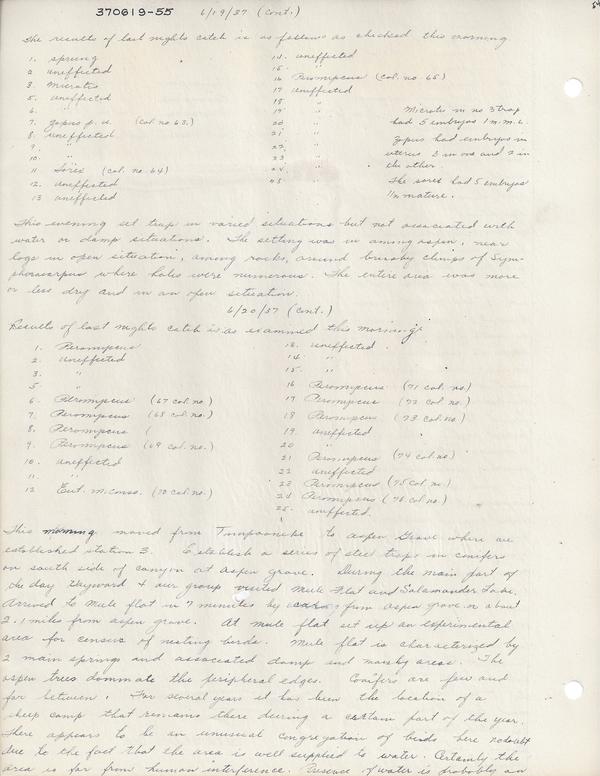 370619-55 6/19/37 (cont.)
The results of last nights catch is as follows as checked this morning
1. sprung
2 uneffected
3. Microtus
5. uneffected
6. "
7. Zapus p. u. (col no 63.)
8. uneffected
9. "
10. "
11 Sorex (col. no. 64)
12. uneffected
13 uneffected
14. uneffected
15. "
16 Peromyscus (col. no. 65)
17 uneffected
18 "
19. "
20 "
21 "
22. "
23 "
24. "
25. "
Microtus in no 3 trap
had 5 embryos 1 m.m.
Zapus had embryos in
uterus 3 in one and 2 in
the other.
The sorex had 5 embryos
mature.
This evening set trap in varied situations but not associated with
water or damp situations. The setting was in among aspen, near
logs in open situation, among rocks, around brushy clumps of Sym-
phoricarpus where holes were numerous. The entire area was more
or less dry and in an open situation.
6/20/37 (cont.)
Results of last nights catch is as examined this morning:
1. Peromyscus
2. uneffected
3. "
5 "
6. Peromyscus (67 col. no.)
7. Peromyscus (68 col no.)
8. Peromyscus (
9. Peromyscus (69 col no.)
10. uneffected
11. "
12 Eut. m. (70 col no.)
13. uneffected
14. "
15. "
16 Peromyscus (71 col. no.)
17 Peromyscus (72 col no.)
18 Peromyscus (73 col no.)
19. uneffected
20 "
21 Peromyscus (74 col no.)
22 uneffected
23 Peromyscus (75 col no.)
24 Peromyscus (76 col no.)
25. uneffected.
This morning moved from Timpooneke to aspen Grove where we
established station 3. Establish a series of steel traps in conifers
on south side of canyon at Aspen grove. During the main part of
the day Hayward & our group visited Mule Flat and Salamander Lake.
Arrived to Mule flat in 7 minutes by car from aspen grove or about
2.1 miles from aspen grove. At mule flat set up an experimental
area for census of nesting birds. Mule flat is characterized by
2 main springs and associated damp and marshy areas. The
aspen trees dominate the peripheral edges. Conifers are few and
far between. For several years it has been the location of a
sheep camp that remains there during a certain part of the year.
There appears to be an unusual congregation of birds here no doubt
due to the fact that the area is well supplied to water. Certainly the
area is far from human interference. Presence of water is probably an